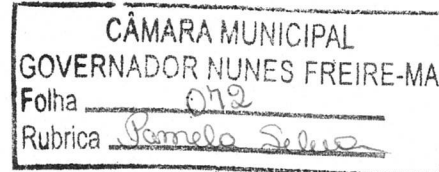 CÂMARA MUNICIPAL
GOVERNADOR NUNES FREIRE-MA
Folha 072
Rubrica Pamela